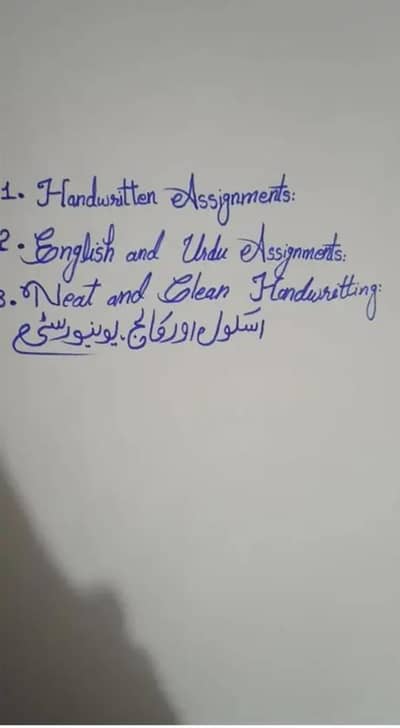 1. Handwritten Assignments:
2. English and Urdu Assignments:
3. Neat and Clean Handwritting:
اسکول اور کالج، یونیورسٹی